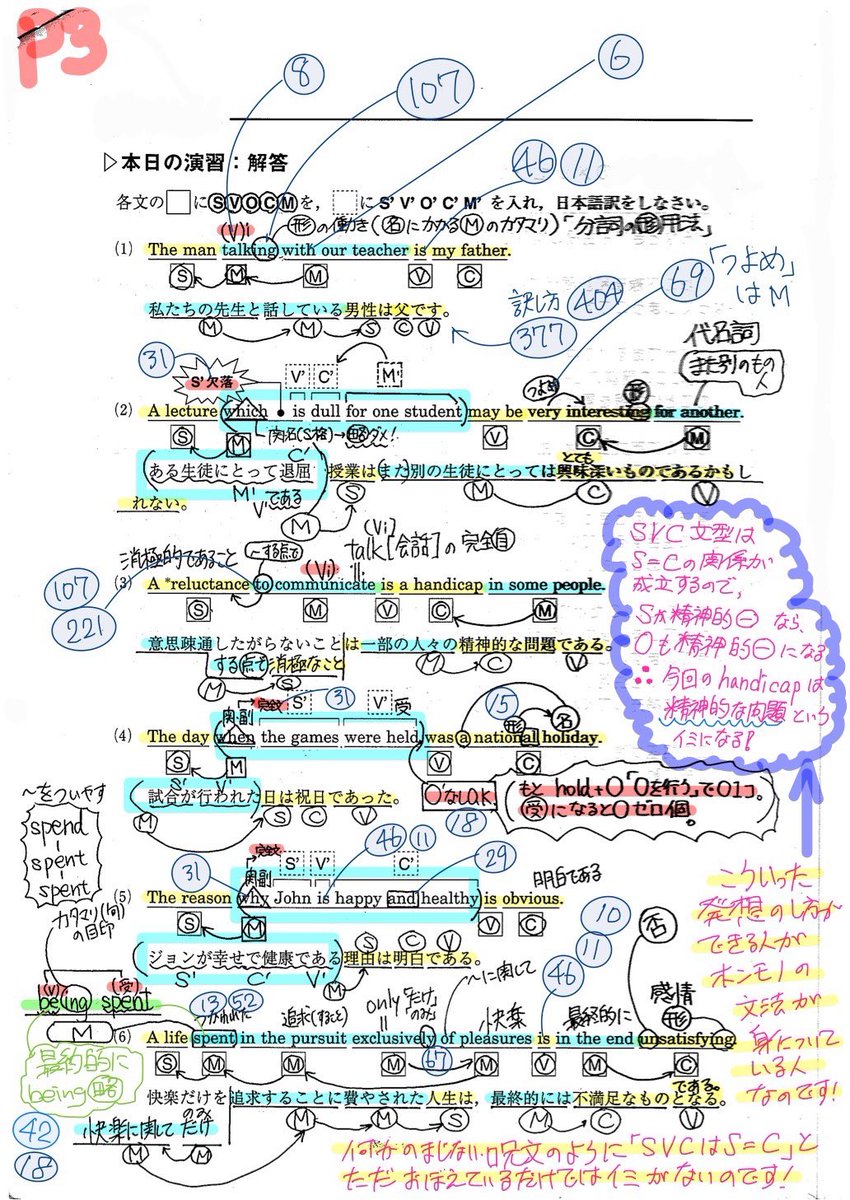 P3
8
107
6
46 11
▷本日の演習：解答
各文の□にⓈⓋⓄⒸⓂを，□に S' V' O' C' M' を入れ，日本語訳をしなさい。
(V)i 形の働き(名にかかるⓂのカタマリ)「分詞の形用法」
(1) The man talking with our teacher is my father.
S M M V C
私たちの先生と話している男性は父です。
M M S C V
訳し方 404
377
69 「つよめ」はM
代名詞
また別のもの人
31
S'欠落
V' C' M'
つよめ 形
(2) A lecture which is dull for one student may be very interesting for another.
S M 関名(S格)→略ダメ! V C M
C' とても
ある生徒にとって退屈 授業は(また)別の生徒にとっては興味深いものであるかもし
れない。
M' V' である S M C V
M
SVC文型は
S=Cの関係が
成立するので、
Sが精神的㊀なら、
Oも精神的㊀になる
∴今回のhandicapは
精神的な問題という
イミになる!
消極的であること ～する点で (Vi) talk[会話]の完全自
(Vi)
107
221
(3) A *reluctance to communicate is a handicap in some people.
S M V C M
意思疎通したがらないことは一部の人々の精神的な問題である。
する点で消極なこと M C V
M S
関副 完文 S' 31 V' 受 15 形 名
(4) The day when the games were held was a national holiday.
S M V C
試合が行われた日は祝日であった。
M S C V
O'なしO.K. 18
もと hold+O「Oを行う」でO1コ。
受になるとOゼロ個。
～をついやす
spend
spent
spent
31
関副 完文 S' V' 46 11 C' 29
明白である
(5) The reason why John is happy and healthy is obvious.
S M V C
S C V
ジョンが幸せで健康である理由は明白である。
S' C' V' M
こういった
発想のし方が
できる人が
ホンモノの
文法が
身について
いる人
なのです!
カタマリ(句)の目印
(V) (受)
being spent
M
最終的に
being略
13 52
つかわれた 追求(すること) only「だけ」「のみ」 ～に関して 快楽 46 11 10 最終的に 否 感情 形
(6) A life spent in the pursuit exclusively of pleasures is in the end unsatisfying.
S M M M 67 M V M C
である。
快楽だけを追求することに費やされた人生は，最終的には不満足なものとなる。
M M S M C V
42
18
快楽に関してだけ のみ
M M
何かのまじない呪文のように「SVCはS=C」と
ただおぼえているだけではイミがないのです!